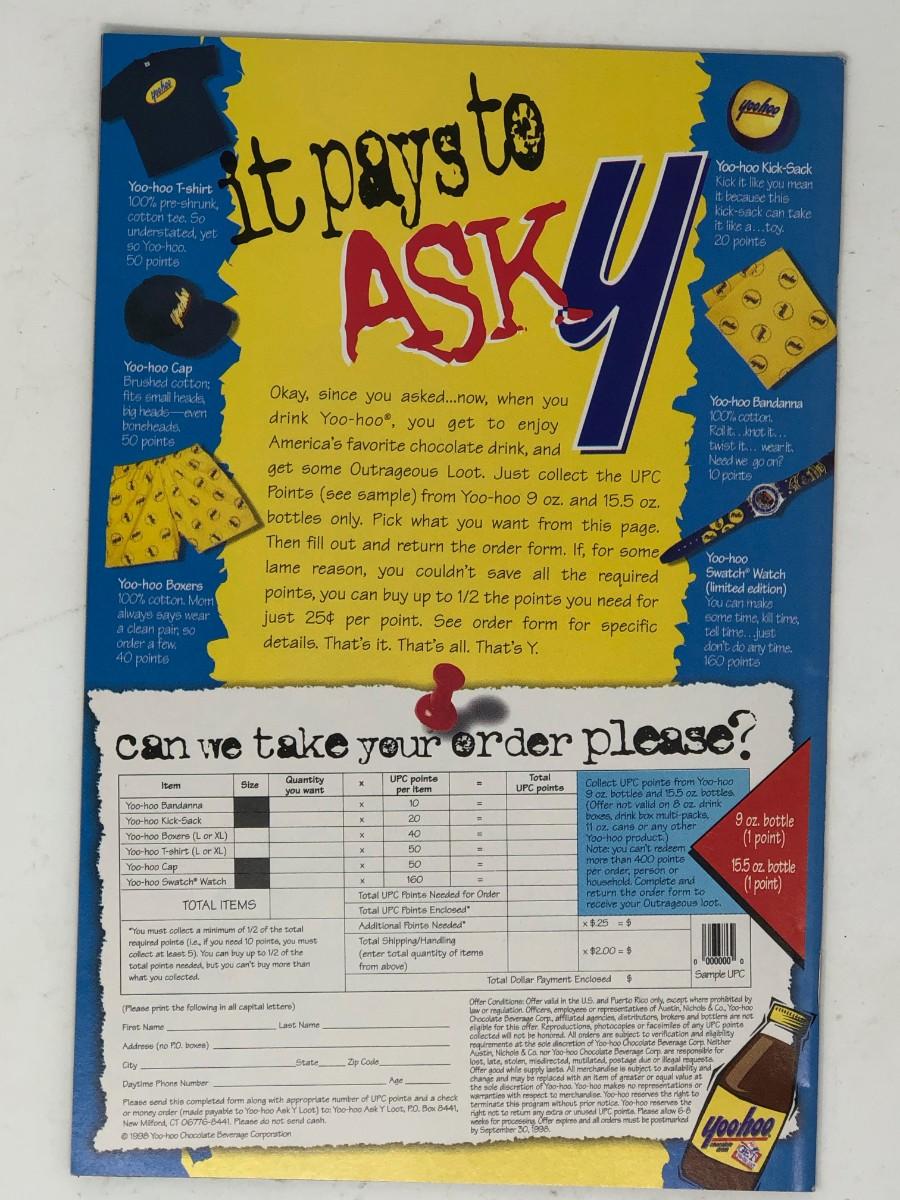 yoohoo
it pays to
ASK Y
yoohoo
Yoo-hoo T-shirt
100% pre-shrunk,
cotton tee. So
understated, yet
so Yoo-hoo.
50 points
yoohoo
Yoo-hoo Cap
Brushed cotton;
fits small heads,
big heads—even
boneheads.
50 points
Yoo-hoo Boxers
100% cotton. Mom
always says wear
a clean pair, so
order a few.
40 points
Okay, since you asked...now, when you
drink Yoo-hoo®, you get to enjoy
America's favorite chocolate drink, and
get some Outrageous Loot. Just collect the UPC
Points (see sample) from Yoo-hoo 9 oz. and 15.5 oz.
bottles only. Pick what you want from this page.
Then fill out and return the order form. If, for some
lame reason, you couldn't save all the required
points, you can buy up to 1/2 the points you need for
just 25¢ per point. See order form for specific
details. That's it. That's all. That's Y.
Yoo-hoo Kick-Sack
Kick it like you mean
it because this
kick-sack can take
it like a...toy.
20 points
Yoo-hoo Bandanna
100% cotton.
Roll it...knot it...
twist it... wear it.
Need we go on?
10 points
Yoo-hoo
Swatch® Watch
(limited edition)
You can make
some time, kill time,
tell time...just
don't do any time.
160 points
can we take your order please?
Item Size Quantity you want x UPC points per item = Total UPC points
Yoo-hoo Bandanna x 10 =
Yoo-hoo Kick-Sack x 20 =
Yoo-hoo Boxers (L or XL) x 40 =
Yoo-hoo T-shirt (L or XL) x 50 =
Yoo-hoo Cap x 50 =
Yoo-hoo Swatch® Watch x 160 =
TOTAL ITEMS
Total UPC Points Needed for Order
Total UPC Points Enclosed*
Additional Points Needed* x $.25 = $
Total Shipping/Handling
(enter total quantity of items
from above) x $2.00 = $
Total Dollar Payment Enclosed $
*You must collect a minimum of 1/2 of the total
required points (i.e., if you need 10 points, you must
collect at least 5). You can buy up to 1/2 of the
total points needed, but you can't buy more than
what you collected.
Collect UPC points from Yoo-hoo
9 oz. bottles and 15.5 oz. bottles.
(Offer not valid on 8 oz. drink
boxes, drink box multi-packs,
11 oz. cans or any other
Yoo-hoo product.)
Note: you can't redeem
more than 400 points
per order, person or
household. Complete and
return the order form to
receive your Outrageous loot.
9 oz. bottle
(1 point)
15.5 oz. bottle
(1 point)
0 000000 0
Sample UPC
(Please print the following in all capital letters)
First Name Last Name
Address (no P.O. boxes)
City State Zip Code
Daytime Phone Number Age
Please send this completed form along with appropriate number of UPC points and a check
or money order (made payable to Yoo-hoo Ask Y Loot) to: Yoo-hoo Ask Y Loot, P.O. Box 8441,
New Milford, CT 06776-8441. Please do not send cash.
© 1998 Yoo-hoo Chocolate Beverage Corporation
Offer Conditions: Offer valid in the U.S. and Puerto Rico only, except where prohibited by
law or regulation. Officers, employees or representatives of Austin, Nichols & Co., Yoo-hoo
Chocolate Beverage Corp., affiliated agencies, distributors, brokers and bottlers are not
eligible for this offer. Reproductions, photocopies or facsimiles of any UPC points
collected will not be honored. All orders are subject to verification and eligibility
requirements at the sole discretion of Yoo-hoo Chocolate Beverage Corp. Neither
Austin, Nichols & Co. nor Yoo-hoo Chocolate Beverage Corp. are responsible for
lost, late, stolen, misdirected, mutilated, postage due or illegal requests.
Offer good while supply lasts. All merchandise is subject to availability and
change and may be replaced with an item of greater or equal value at
the sole discretion of Yoo-hoo. Yoo-hoo makes no representations or
warranties with respect to merchandise. Yoo-hoo reserves the right to
terminate this program without prior notice. Yoo-hoo reserves the
right not to return any extra or unused UPC points. Please allow 6-8
weeks for processing. Offer expires and all orders must be postmarked
by September 30, 1998.
yoohoo
chocolate
drink